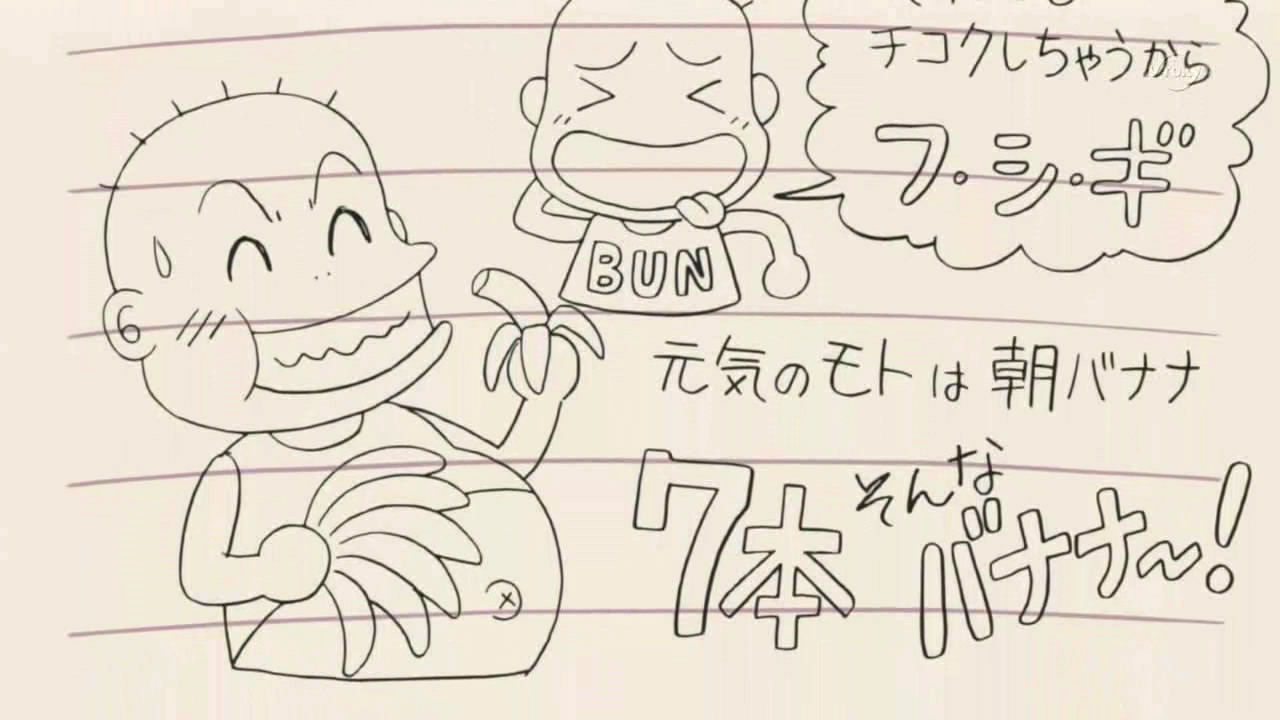 チコクしちゃうから
フ・シ・ギ
BUN
元気のモトは朝バナナ
7本 そんな
バナナ〜!